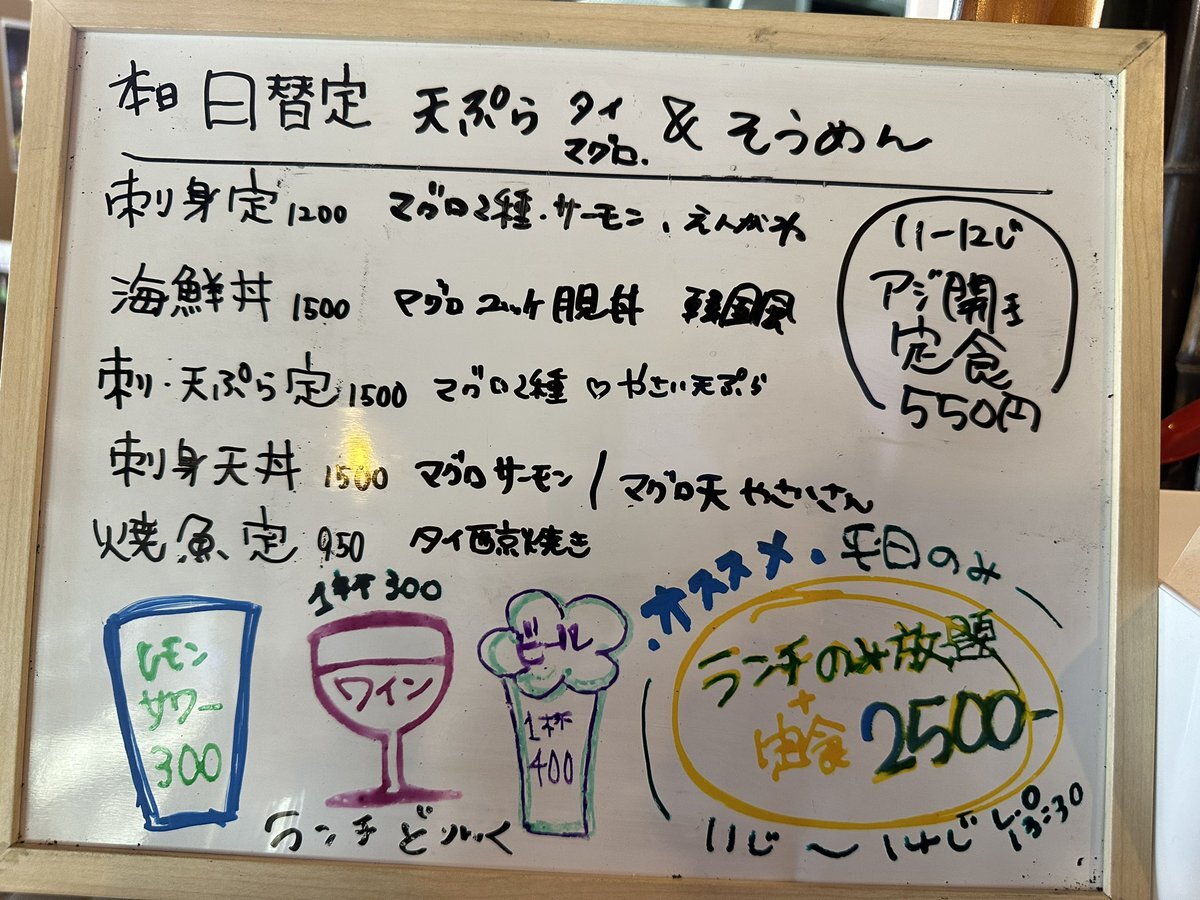 本日 日替定 天ぷら タイ マグロ. & そうめん
刺身定 1200 マグロ2種・サーモン、えんがわ
海鮮丼 1500 マグロユッケ 丼 韓国風
刺・天ぷら定 1500 マグロ2種 ♡やさい天ぷら
刺身天丼 1500 マグロサーモン / マグロ天 やさいさん
焼魚定 950 タイ西京焼き
11-12じ
アジ開き
定食
550円
1杯300
レモン
サワー
300
ワイン
ビール
1杯
400
ランチどりんく
・オススメ・平日のみ
ランチのみ放題
+
定食 2500-
11じ〜14じ L.O 13:30